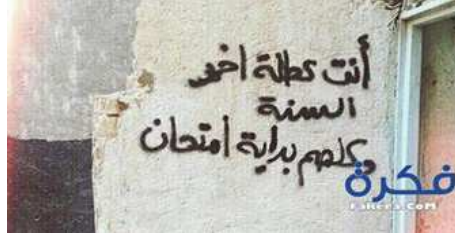 أنت عطلة اخر
السنة
وكلهم بداية امتحان
فكرة
Fakera.CoM